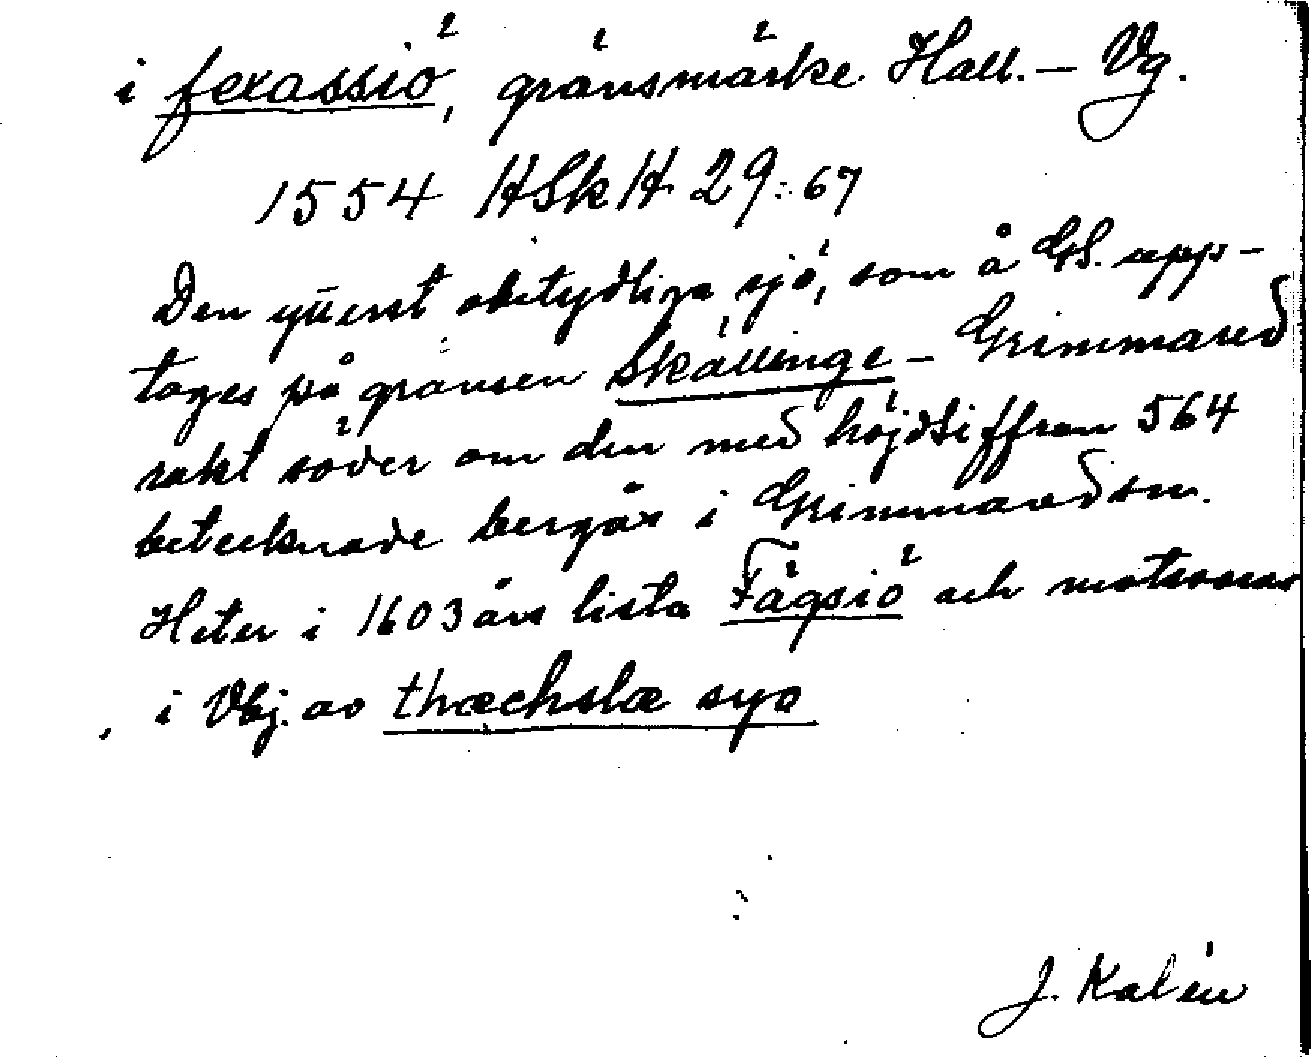 i fexassiö, gränsmärke Hall. – Vg.
1554 HSkH 29:67
Den ytterst obetydliga sjö, som å GS. upp-
tages på gränsen Skällinge – Grimmared
rakt söder om den med höjdsiffran 564
betecknade bergås i Grimmared sn.
Heter i 1603 års lista Fägsiö och motsvaras
i Vbj. av thæchslæ syo
J. Kalén